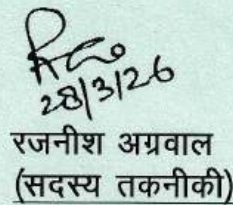 28/3/26
रजनीश अग्रवाल
(सदस्य तकनीकी)